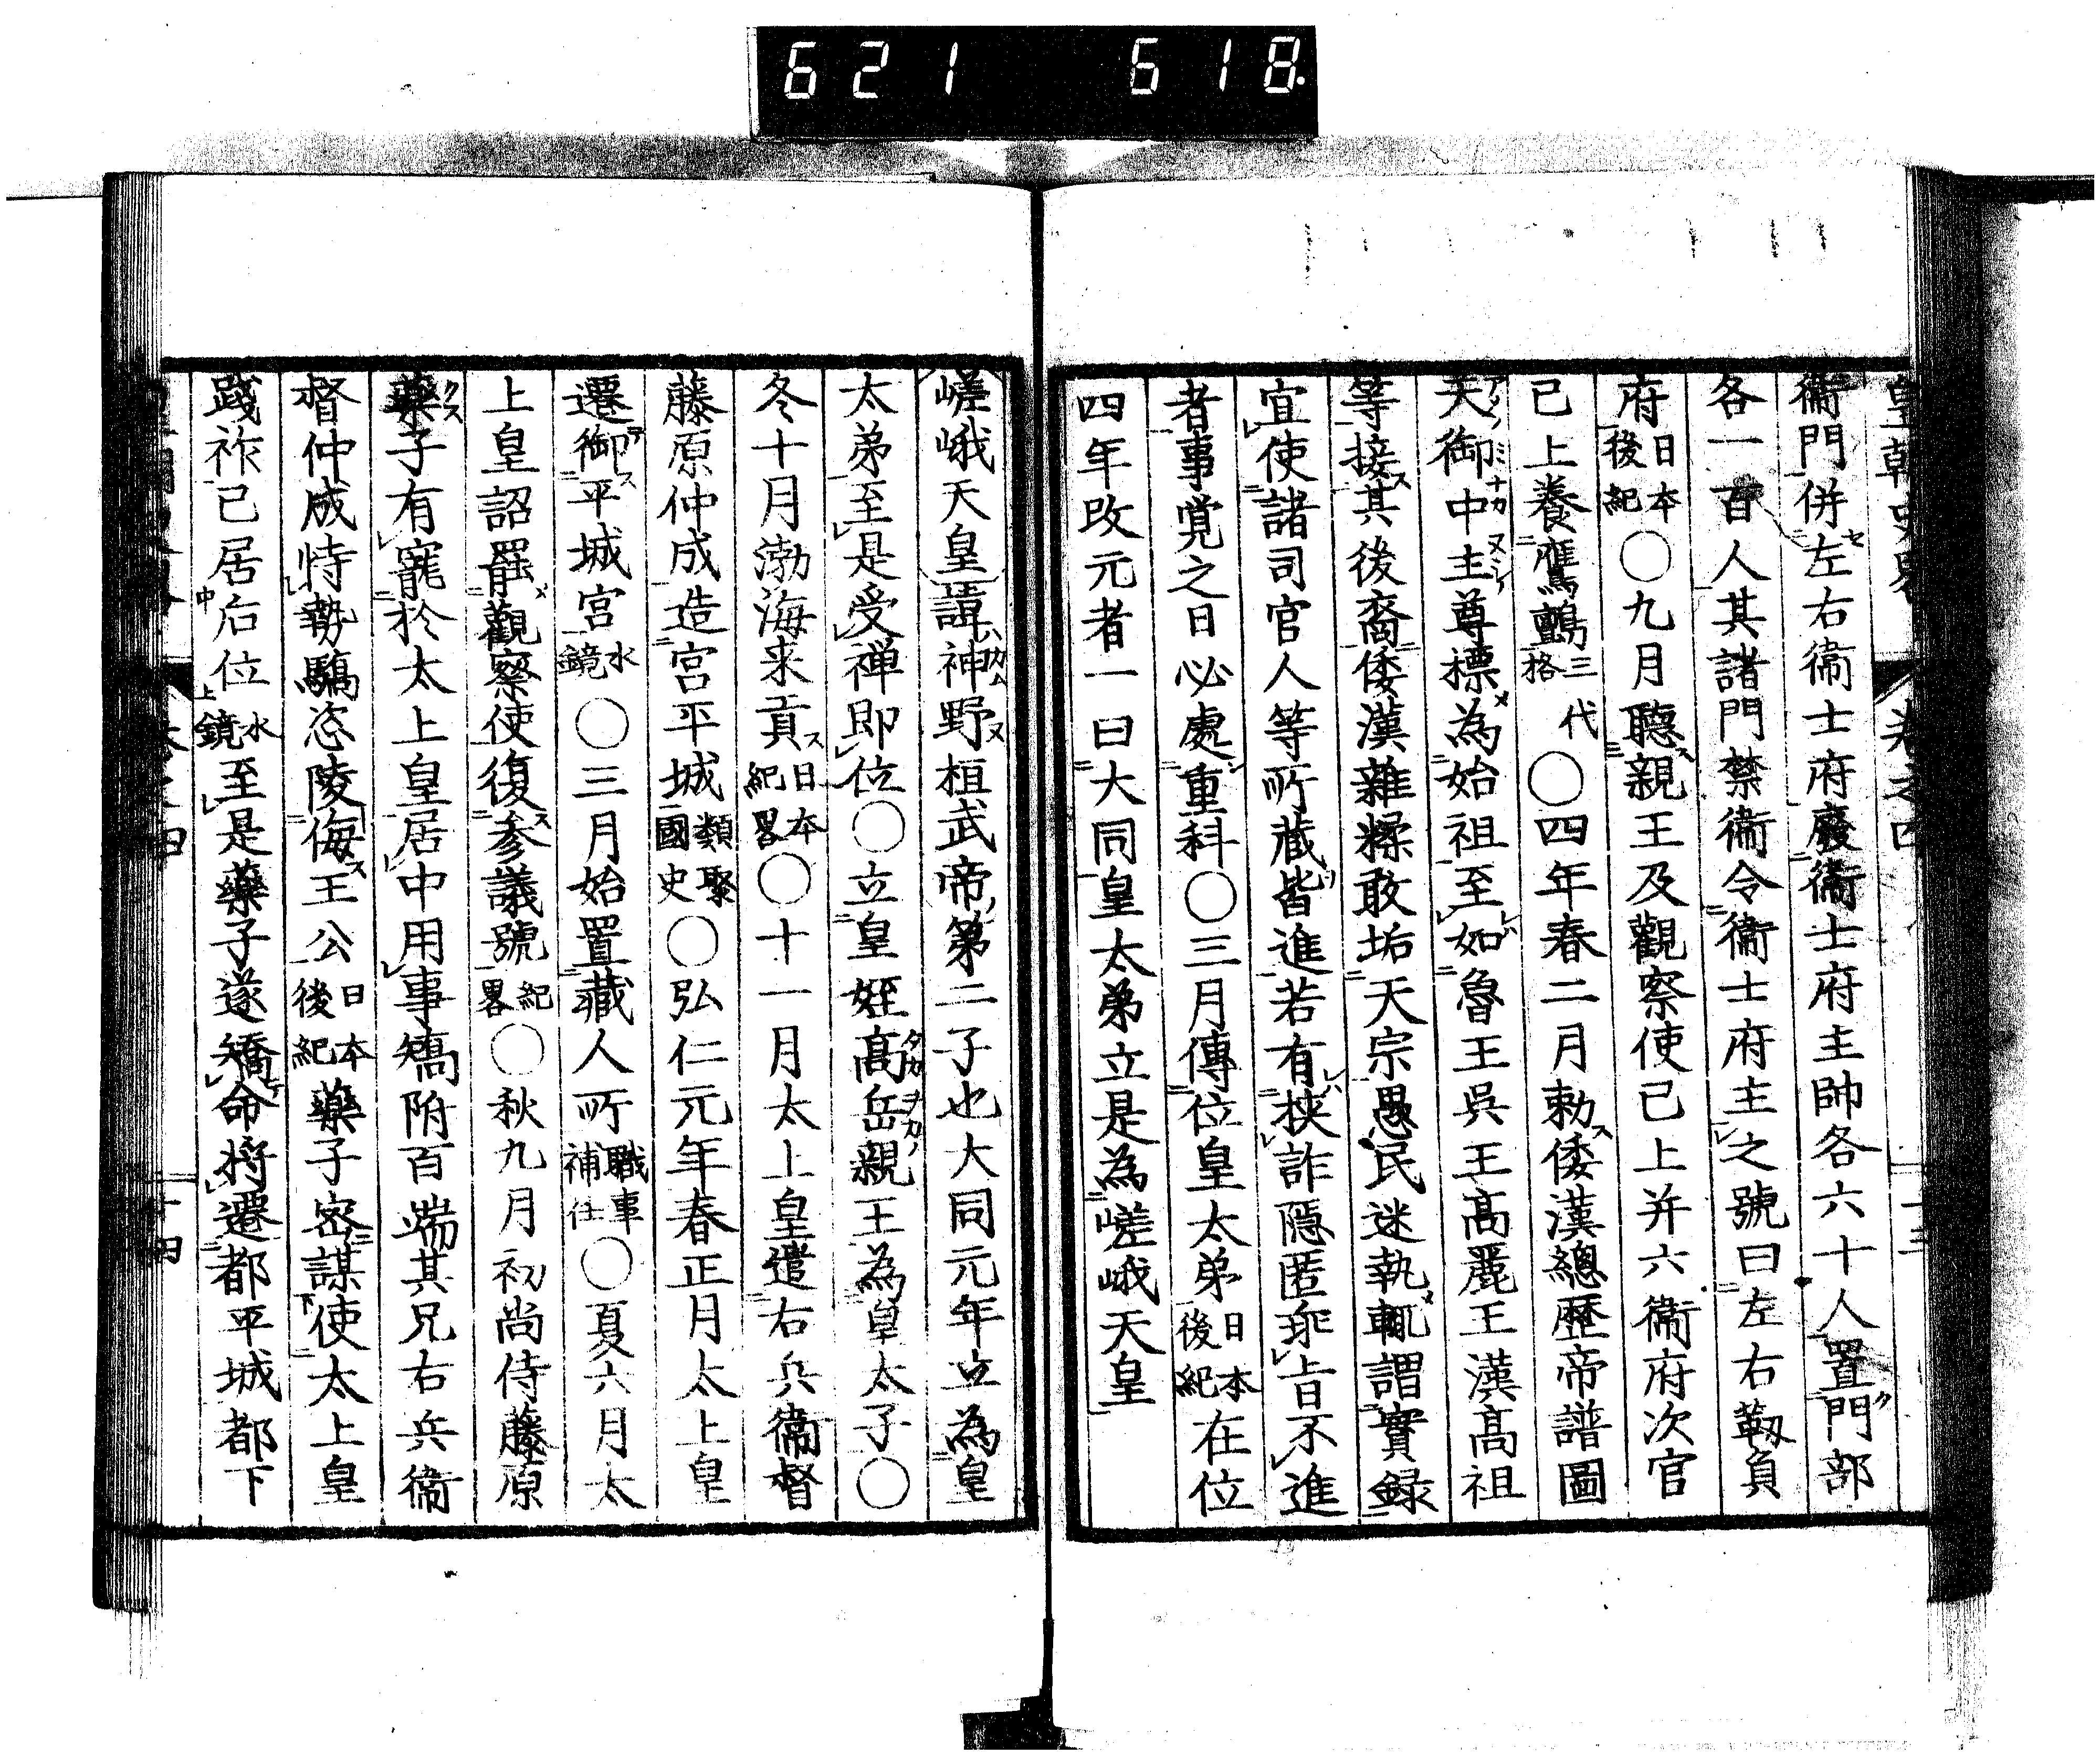 621 618
皇朝史畧 卷之四 十三
衞門併左右衞士府廢衞士府主帥各六十人置門部
各一百人其諸門禁衞令衞士府主之號曰左右靱負
府日本後紀○九月聽親王及觀察使已上并六衞府次官
已上養鷹鸇三代格○四年春二月勅倭漢總歷帝譜圖
天御中主尊標為始祖至如魯王吳王高麗王漢高祖
等接其後裔倭漢雜糅敢垢天宗愚民迷執輒謂實録
宜使諸司官人等所藏皆進若有挾詐隱匿乖旨不進
者事覺之日必處重科○三月傳位皇太弟日本後紀在位
四年改元者一曰大同皇太弟立是為嵯峨天皇
嵯峨天皇諱神野桓武帝第二子也大同元年立為皇
太弟至是受禅即位○立皇姪高岳親王為皇太子○
冬十月渤海来貢日本紀畧○十一月太上皇遣右兵衞督
藤原仲成造宮平城類聚國史○弘仁元年春正月太上皇
遷御平城宮水鏡○三月始置藏人所職事補任○夏六月太
上皇詔罷觀察使復參議號紀畧○秋九月初尚侍藤原
藥子有寵於太上皇居中用事矯附百端其兄右兵衞
督仲成恃勢驕恣陵侮王公日本後紀藥子密謀使太上皇
踐祚已居后位水鏡至是藥子遂矯命將遷都平城都下